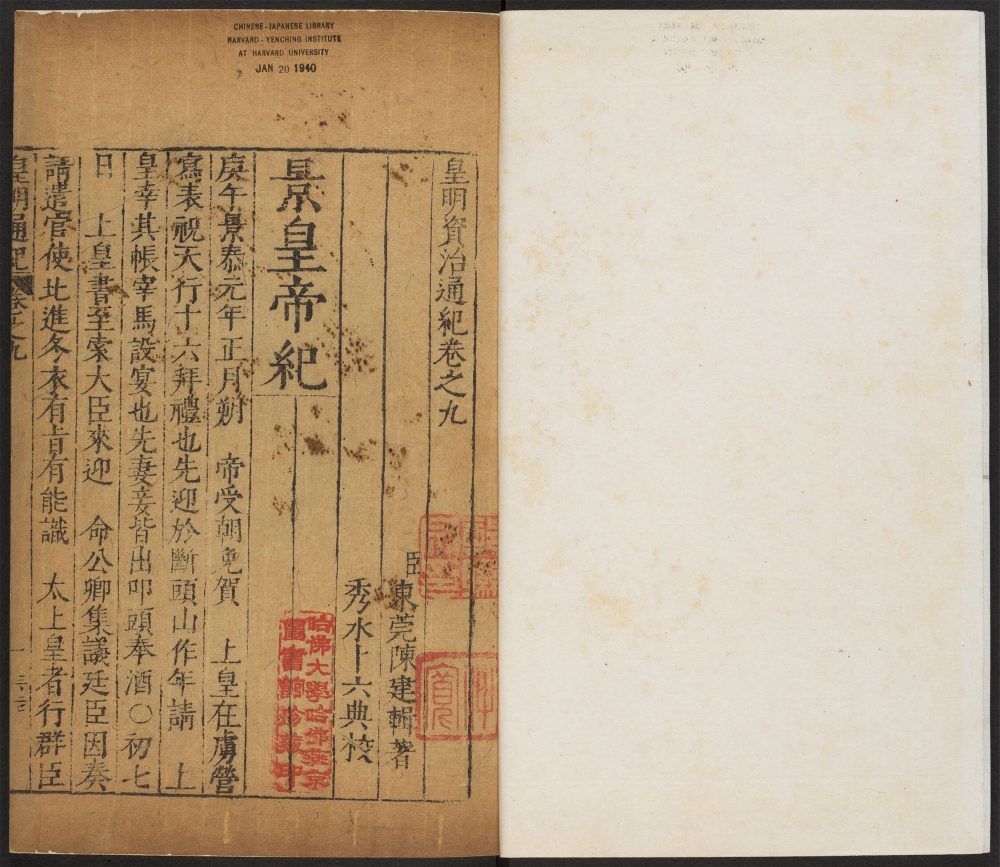 CHINESE-JAPANESE LIBRARY
HARVARD-YENCHING INSTITUTE
AT HARVARD UNIVERSITY
JAN 20 1940
皇明資治通紀卷之九
臣東莞陳建輯著
秀水卜六典校
景皇帝紀
庚午景泰元年正月朔 帝受朝免賀 上皇在虜營
寫表祝天行十六拜禮也先迎於斷頭山作年請 上
皇幸其帳宰馬設宴也先妻妾皆出叩頭奉酒○初七
日 上皇書至索大臣來迎 命公卿集議廷臣因奏
請遣官使北進冬衣有旨有能識 太上皇者行群臣
皇明通紀 卷之九
哈佛大學哈佛燕京
圖書館珍藏印